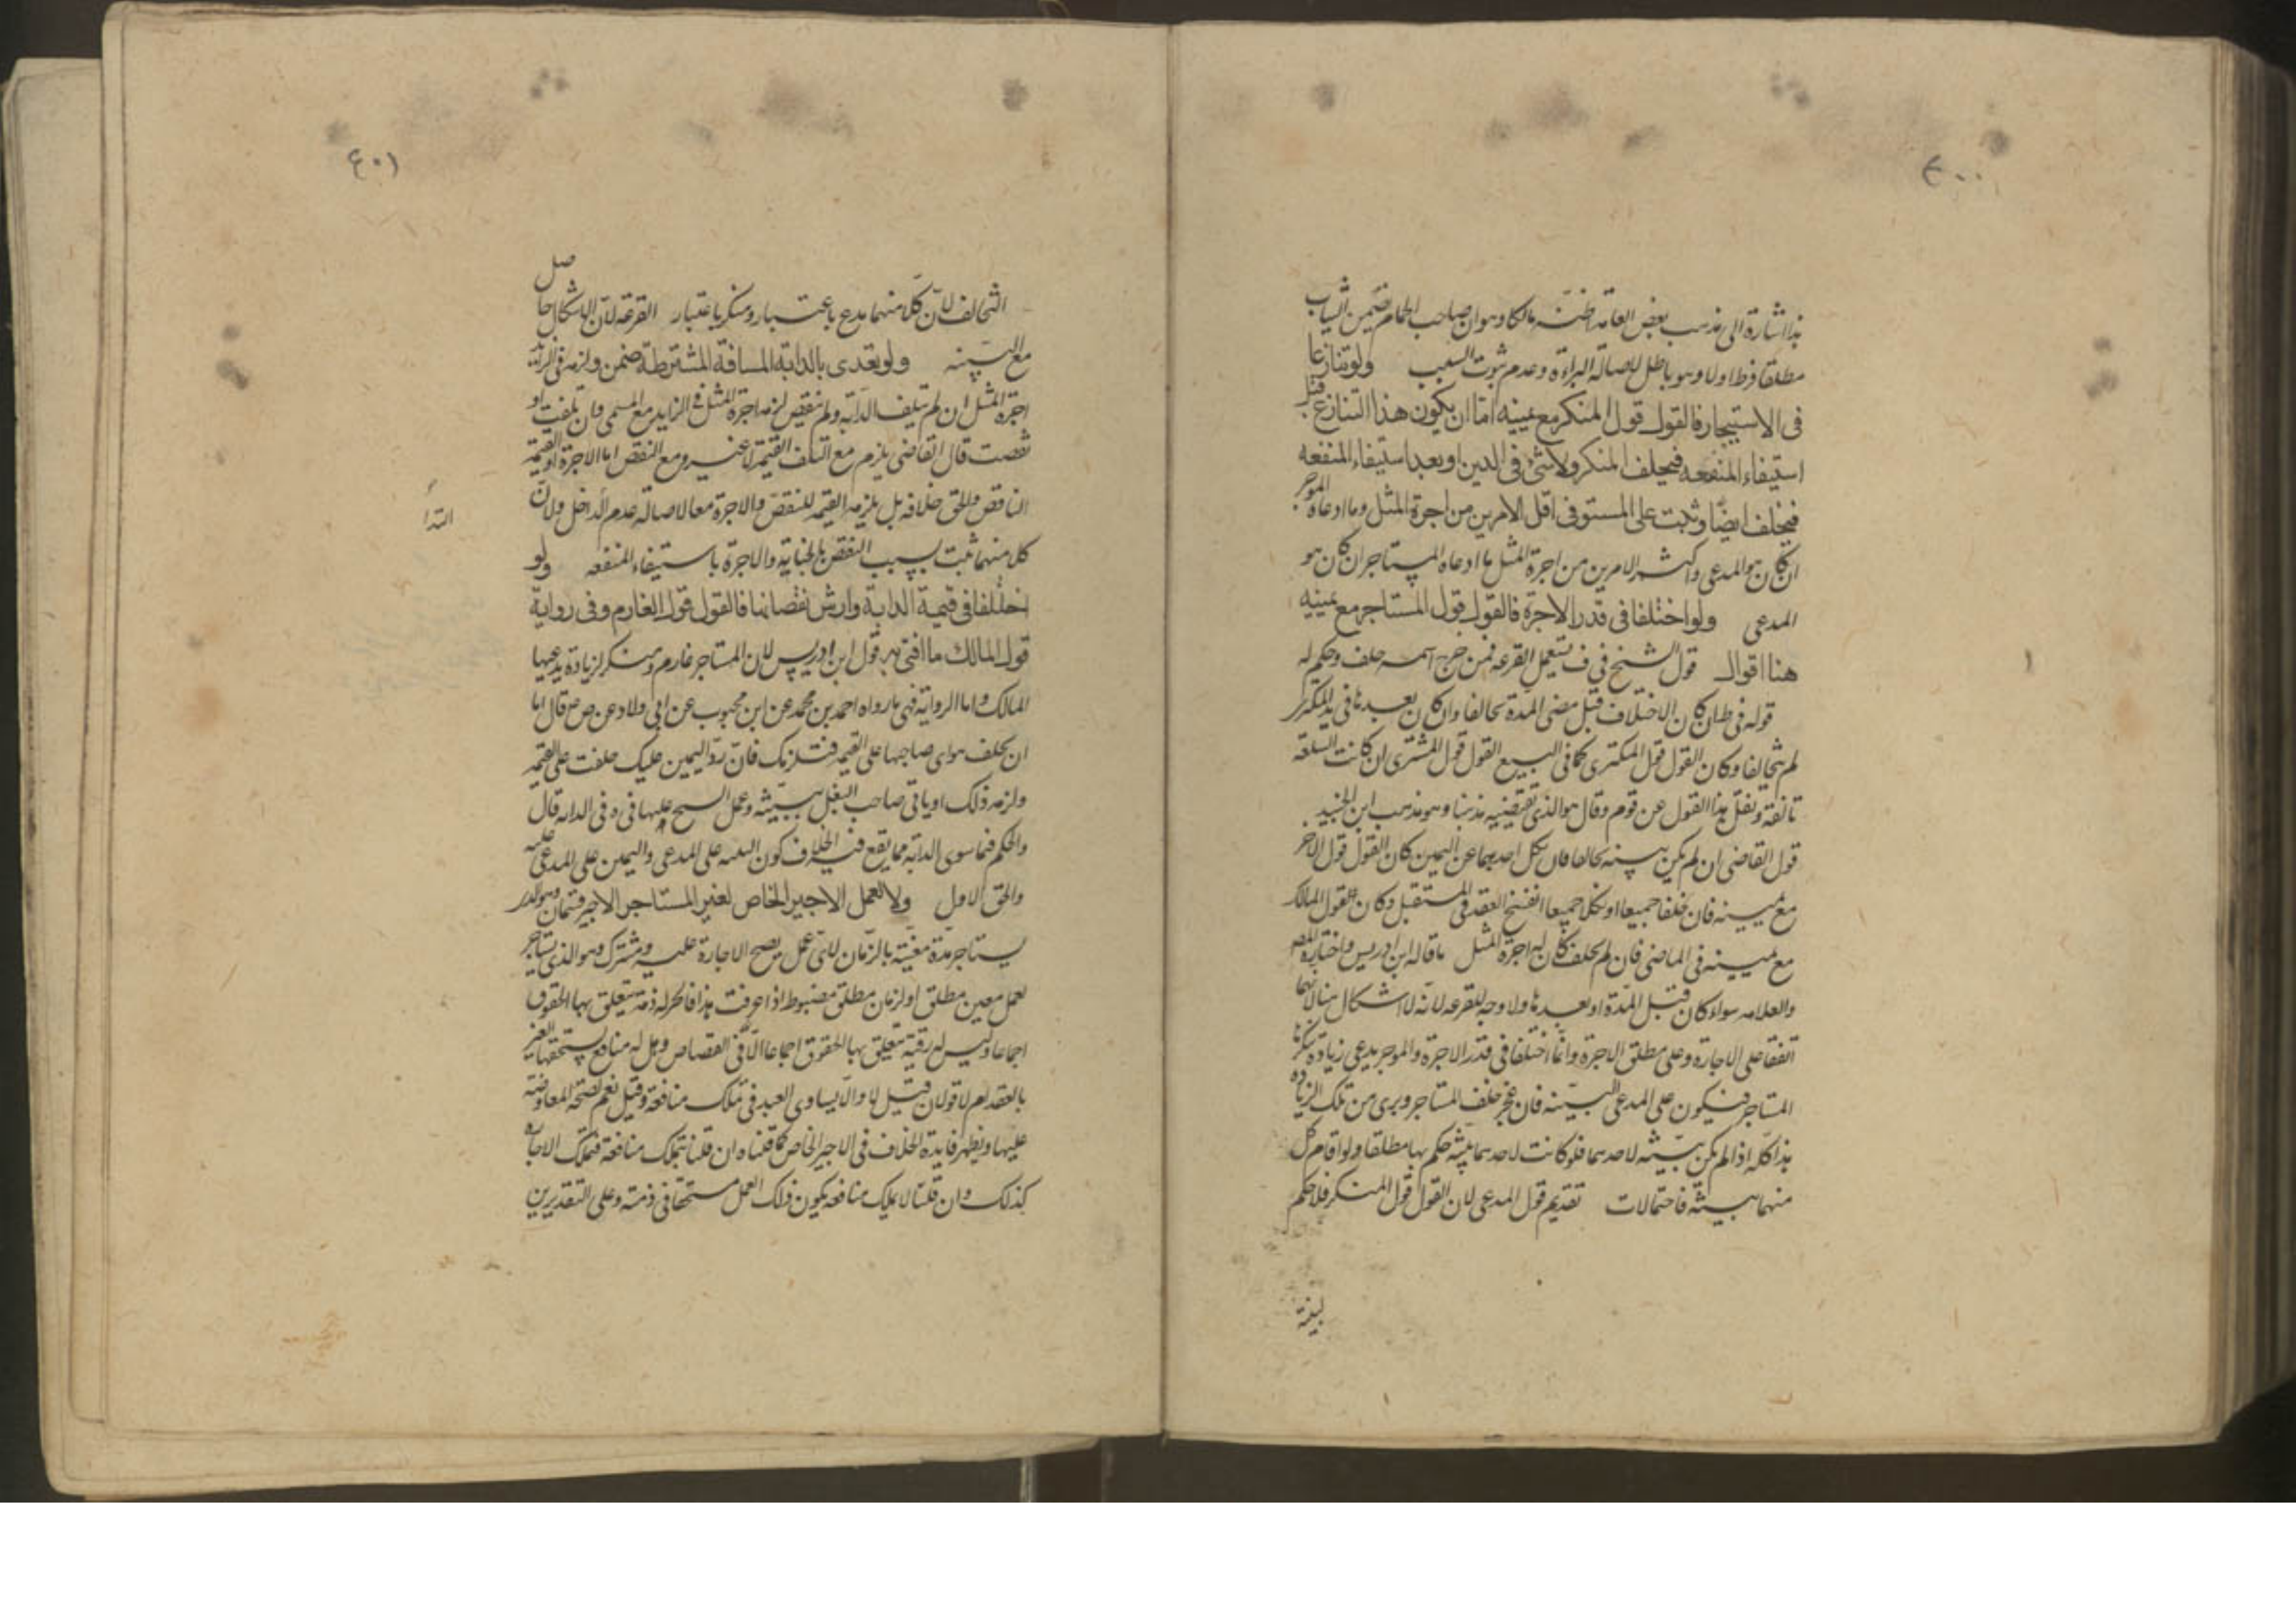 ٤٠٠
هذا اشارة الى مذهب بعض العامة اظنه مالكا وهو ان صاحب الحمام ضمين الثياب
مطلقا فرط اولا وهو باطل لاصالة البراءة وعدم ثبوت السبب ولو تنازعا
فى الاستيجار فالقول قول المنكر مع يمينه اما ان يكون هذا التنازع قبل
استيفاء المنفعه فيحلف المنكر ولا شى فى الدين او بعد استيفاء المنفعه
فيحلف ايضا وثبت على المستوفى اقل الامرين من اجرة المثل وما ادعاه الموجر
ان كان هو المدعى واكثر الامرين من اجرة المثل ما ادعاه المستاجر ان كان هو
المدعى ولو اختلفا فى قدر الاجرة فالقول قول المستاجر مع يمينه
هنا اقوال قول الشيخ فى ف تستعمل القرعه فمن خرج اسمه حلف وحكم له
قوله فى ط ان كان الاختلاف قبل مضى المدة تحالفا وان كان بعدها فى يد المكترى
لم يتحالفا وكان القول قول المكترى كما فى البيع القول قول المشترى ان كانت السلعة
تالفة ونقل هذا القول عن قوم وقال هو الذى تقتضيه مذهبنا وهو مذهب ابن الجنيد
قول القاضى ان لم يكن بينة تحالفا فان نكل احدهما عن اليمين كان القول قول الاخر
مع يمينه فان حلفا جميعا او نكلا جميعا انفسخ العقد فى المستقبل وكان القول قول المالك
مع يمينه فى الماضى فان لم يحلف كان له اجرة المثل ما قاله ابن ادريس واختاره المصر
والعلامه سواء كان قبل المدة او بعدها ولا وجه للقرعه لانه لا اشكال هنا لانهما
اتفقا على الاجارة وعلى مطلق الاجرة وانما اختلفا فى قدر الاجرة والموجر يدعى زيادة ينكرها
المستاجر فيكون على المدعى البينه فان عجز حلف المستاجر وبرى من تلك الزيادة
هذا كله اذا لم يكن بينة لاحدهما فلو كانت لاحدهما بينة حكم بها مطلقا ولو اقام كل
منهما بينة فاحتمالات تقديم قول المدعى لان القول قول المنكر فلا حكم
لبينة
٤٠١
التحالف لان كلا منهما مدع باعتبار ومنكر باعتبار القرعة لان الاشكال حاصل
مع البينه ولو تعدى بالدابة المسافة المشترطة ضمن ولزمه فى الزائد
اجرة المثل ان لم يتلف الدابة ولم ينقص لزمه اجرة المثل فى الزايد مع المسمى وان تلفت او
نقصت قال القاضى يلزم مع التلف القيمة لا غير ومع النقص اما الاجرة او القيمة
الناقص والحق خلافه بل يلزمه القيمه للنقص والاجرة معا لاصالة عدم التداخل ولان
كل منهما ثبت بسبب النقص بالجناية والاجرة باستيفاء المنفعه ولو
اختلفا فى قيمة الدابة وارش نقصانها فالقول قول الغارم وفى رواية
قول المالك ما افتى به قول ابن ادريس لان المستاجر غارم ومنكر لزيادة يدعيها
المالك واما الرواية فهى ما رواه احمد بن محمد عن ابن محبوب عن ابى ولاد عن ص ع قال اما
ان يحلف هو اى صاحبها على القيمه فتلزمك فان رد اليمين عليك حلفت على القيمه
ولزمه ذلك او ياتى صاحب البغل ببينة وعمل الشيخ عليها فى ه وفى الدابة قال
والحكم فيما سوى الدابه مما يقع فيه الخلاف كون البينه على المدعى واليمين على المدعى عليه
والحق الاول ولا يعمل الاجير الخاص لغير المستاجر الاجير قسمان وهو الذى
يستاجر مدة معينة بالزمان لاى عمل يصح الاجارة عليه ومشترك وهو الذى يستاجر
لعمل معين مطلق او لزمان مطلق مضبوط اذا عرفت هذا فالحر له ذمة يتعلق بها الحقوق
اجماعا وليس له رقبة يتعلق بها الحقوق اجماعا الا فى القصاص وهل له منافع يستحقها الغير
بالعقد ام لا قولان قيل لا والا يساوى العبد فى تملك منافعه وقيل نعم لصحة المعاوضة
عليها ويظهر فايدة الخلاف فى الاجير الخاص كما قلناه ان قلنا بتملك منافعه فتملك الاجارة
كذلك وان قلنا لا يملك منافعه يكون ذلك العمل مستحقا فى ذمته وعلى التقديرين
التدا